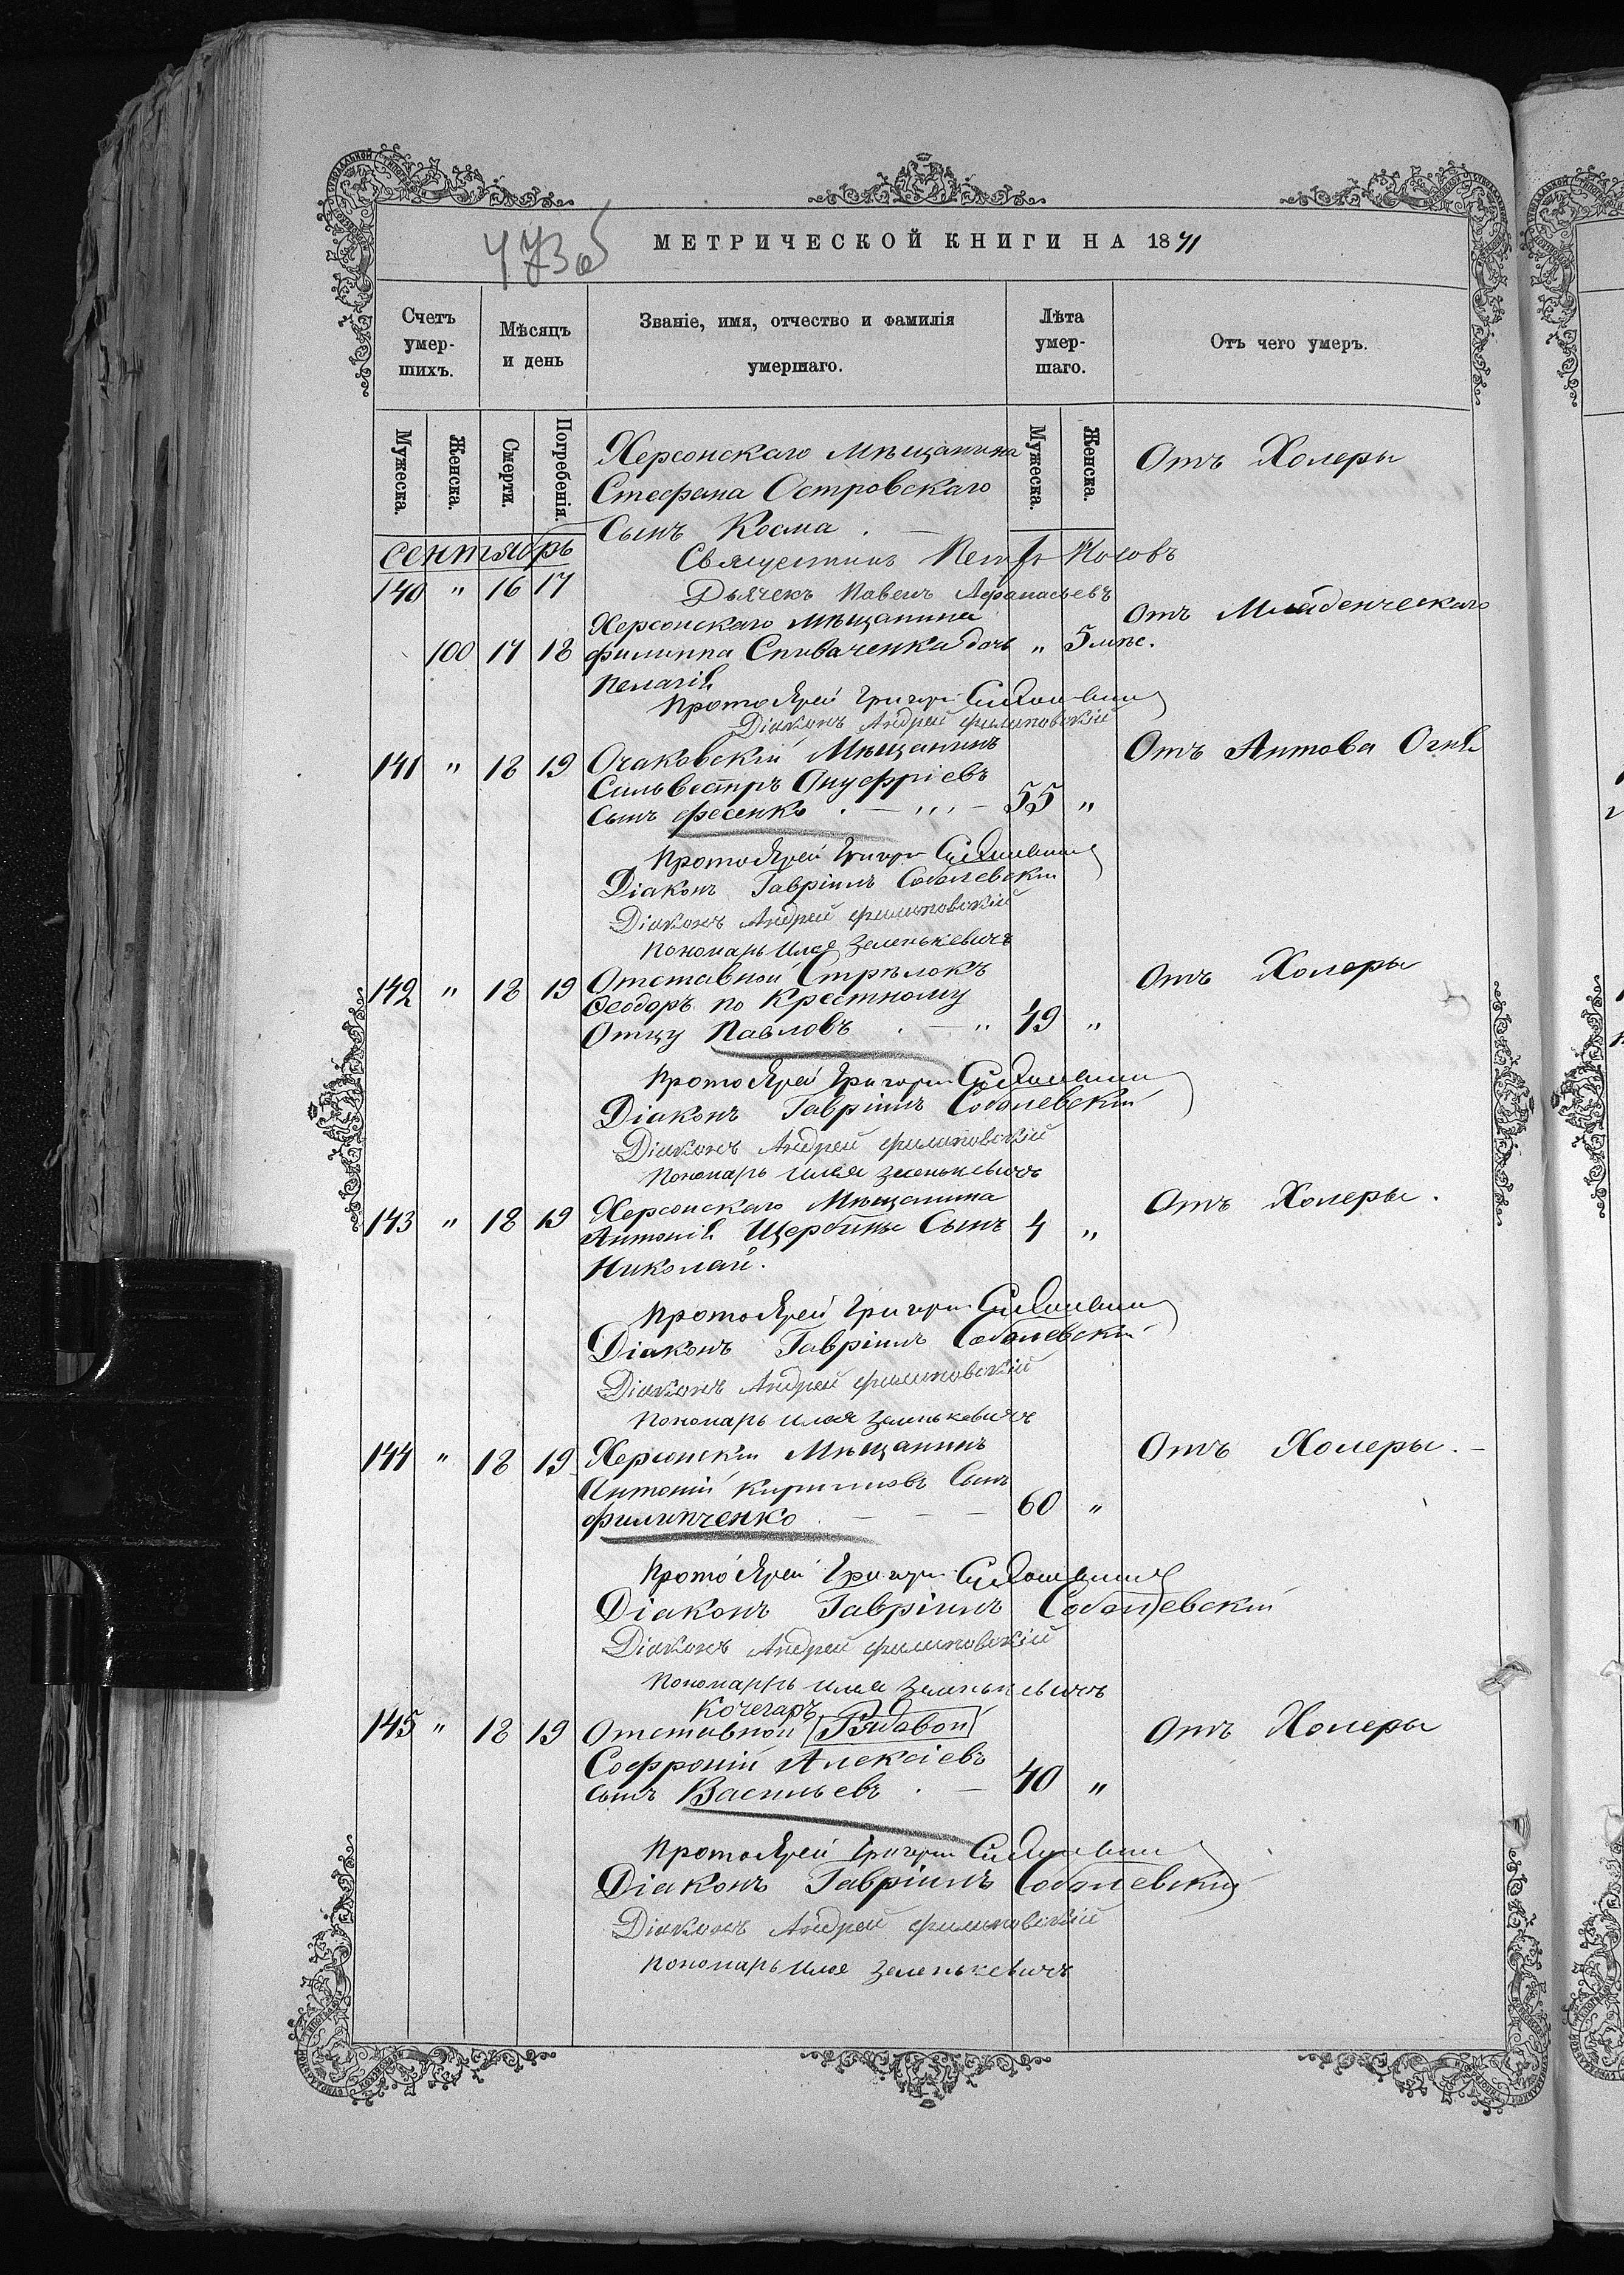 473об
МЕТРИЧЕСКОЙ КНИГИ НА 1871
Счетъ умер-шихъ.
Мѣсяцъ и день
Званіе, имя, отчество и фамилія умершаго.
Лѣта умер-шаго.
Отъ чего умеръ.
Мужеска.
Женска.
Смерти.
Погребенія.
Мужеска.
Женска.
Херсонскаго Мѣщанина Отъ Холеры
Стефана Островскаго
Сынъ Косма . —
сентябрь
Священникъ Петръ Носовъ
140 " 16 17
Дьячекъ Павелъ Афанасьевъ
Херсонскаго мѣщанина Отъ Младенческаго
100 17 18 Филиппа Спиваченка дочь " 5 мѣс.
Пелагія
Протоіерей Григорій
Діаконъ Андрей Филиповскій
141 " 18 19 Очаковскій Мѣщанинъ Отъ Антова Огня
Сильвестръ Онуфріевъ
Сынъ Фесенко . — ,,, — 55 "
Протоіерей Григорій
Діаконъ Гавріилъ Соболевскій
Діаконъ Андрей Филиповскій
Пономарь Илья Зеленькевичъ
142 " 18 19 Отставной Стрѣлокъ Отъ Холеры
Ѳеодоръ по Крестному
Отцу Павловъ . — " 49 "
Протоіерей Григорій
Діаконъ Гавріилъ Соболевскій
Діаконъ Андрей Филиповскій
Пономарь Илья Зеленькевичъ
143 " 18 19 Херсонскаго Мѣщанина Отъ Холеры.
Антонія Щербины Сынъ 4 "
Николай.
Протоіерей Григорій
Діаконъ Гавріилъ Соболевскій
Діаконъ Андрей Филиповскій
Пономарь Илья Зеленькевичъ
144 " 18 19 Херсонскій Мѣщанинъ Отъ Холеры. —
Антоній Кириловъ Сынъ
Филипченко . — — — 60 "
Протоіерей Григорій
Діаконъ Гавріилъ Соболевскій
Діаконъ Андрей Филиповскій
Пономарь Илья Зеленькевичъ
Кочегаръ
145 " 18 19 Отставной Рядовой Отъ Холеры
Софроній Алексіевъ
сынъ Васильевъ . — 40 "
Протоіерей Григорій
Діаконъ Гавріилъ Соболевскій
Діаконъ Андрей Филиповскій
Пономарь Илья Зеленькевичъ